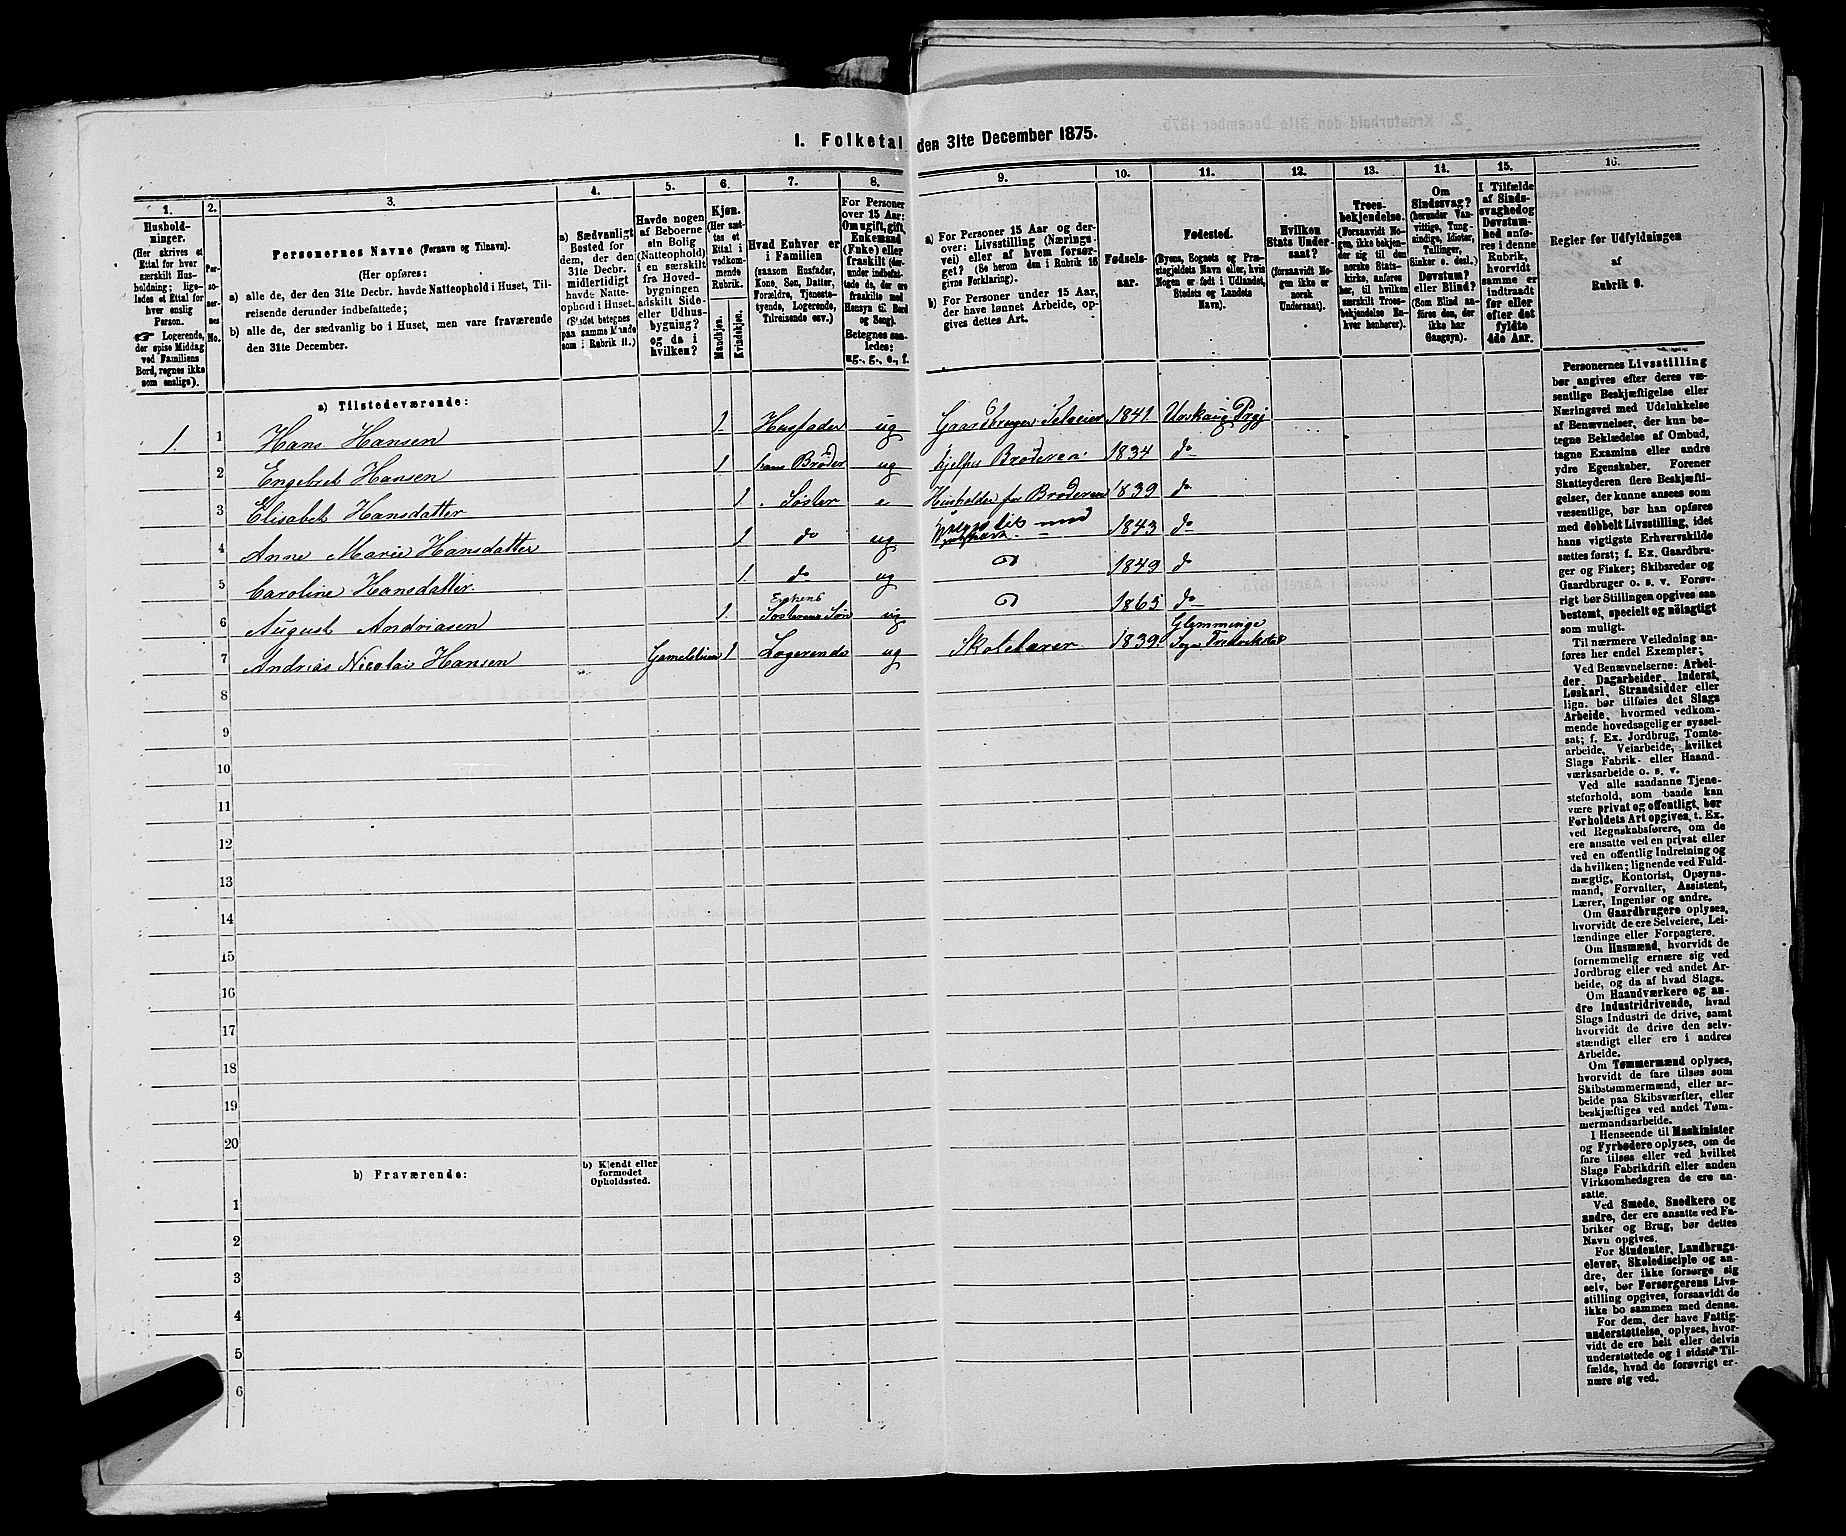 I. Folketal den 31te December 1875.
1. 2. 3. 4. 5. 6. 7. 8. 9. 10. 11. 12. 13. 14. 15. 16.
Hushold-
ninger.
(Her skrives et
Ettal for hver
særskilt Hus-
holdning; lige-
ledes et Ettal for
hver enslig
Person.
☞ Logerende,
der spise Middag
ved Familiens
Bord, regnes ikke
som enslige).
Per-
so-
ner-
nes
No.
Personernes Navne (Fornavn og Tilnavn).
(Her opføres:
a) alle de, der den 31te Decbr. havde Natteophold i Huset, Til-
reisende derunder indbefattede;
b) alle de, der sædvanlig bo i Huset, men vare fraværende
den 31te December.
a) Sædvanligt
Bosted for
dem, der den
31te Decbr.
midlertidigt
havde Natte-
ophold i Huset.
(Stedet betegnes
paa samme Maade
som i Rubrik 11.)
Havde nogen
af Beboerne
sin Bolig
(Natteophold)
i en særskilt
fra Hoved-
bygningen
adskilt Side-
eller Udhus-
bygning?
og da i
hvilken?
Kjøn.
(Her sæt-
tes et
Ettal i
vedkom-
mende
Rubrik.
Mandkjøn.
Kvindekjøn.
Hvad Enhver er
i Familien
(saasom Husfader,
Kone, Søn, Datter,
Forældre, Tjeneste-
tyende, Logerende,
Tilreisende osv.)
For Personer
over 15 Aar:
Om ugift, gift,
Enkemand
(Enke) eller
fraskilt (der-
under indbefat-
tede de, der ere
fraskilte med
Hensyn til Bord
og Seng).
Betegnes saa-
ledes:
ug., g., e., f.
a) For Personer 15 Aar og der-
over: Livsstilling (Nærings-
vei) eller af hvem forsør-
get? (Se herom den i Rubrik 16
givne Forklaring).
b) For Personer under 15 Aar,
der have lønnet Arbeide, op-
gives dettes Art.
Fødsels-
aar.
Fødested.
(Byens, Sognets og Præ-
stegjeldets Navn eller, hvis
Nogen er født i Udlandet,
Stedets og Landets
Navn).
Hvilken
Stats Under-
saat?
(forsaavidt No-
gen ikke er
norsk
Undersaat).
Troes-
bekjendelse.
(Forsaavidt No-
gen, ikke bekjen-
der sig til den
norske Stats-
kirke, anføres
her, til hvilken
særskilt Troes-
bekjendelse En-
hver henhører).
Om
Sindssvag?
(herunder Van-
vittige, Tung-
sindige, Idioter,
Tullinger,
Sinker o. desl.)
Døvstum?
eller Blind?
(Som Blind an-
føres den, der
ikke har
Gangsyn).
I Tilfælde
af Sinds-
svaghed og
Døvstum-
hed anfø-
res i denne
Rubrik,
hvorvidt
samme er
indtraadt
før eller
efter det
fyldte
4de Aar.
Regler for Udfyldningen
af
Rubrik 9.
a) Tilstedeværende:
1. 1 Hans Hansen 1 Husfader ug Gaardbruger Selveier 1841 Urskaug Prgj
2 Engebret Hansen 1 hans Broder ug hjelper Broderen 1834 do
3 Elisabet Hansdatter 1 Søster e Husholder for Broderen 1839 do
4 Anne Marie Hansdatter 1 do ug med 1843 do
5 Caroline Hansdatter 1 do ug 1849 do
6 August Andriasen 1. Enkens Søsterens Søn ug 1865 do
7 Andrias Nicolai Hansen 1 Logerende ug Skolelærer 1839 Glemminge Sogn Fredrikstad
8
9
10
11
12
13
14
15
16
17
18
19
20
b) Fraværende:
b) Kjendt eller
formodet
Opholdssted.
1
2
3
4
5
6
Personernes Livsstilling
bør angives efter deres væ-
sentlige Beskjæftigelse eller
Næringsvei med Udelukkelse
af Benævnelser, der kun be-
tegne Beklædelse af Ombud,
tagne Examina eller andre
ydre Egenskaber. Forener
Skatteyderen flere Beskjæfti-
gelser, der kunne ansees som
væsentlige, bør han opføres
med dobbelt Livsstilling, idet
hans vigtigste Erhvervskilde
sættes først; f. Ex. Gaardbru-
ger og Fisker; Skibsreder og
Gaardbruger o. s. v. Forøv-
rigt bør Stillingen opgives saa
bestemt, specielt og nöiagtigt
som muligt.
Til nærmere Veiledning an-
føres her endel Exempler;
Ved Benævnelserne: Arbei-
der, Dagarbeider, Inderst,
Løskarl, Strandsidder eller
lign. bør tilføies det Slags
Arbeide, hvormed vedkom-
mende hovedsagelig er syssel-
sat; f. Ex. Jordbrug, Tomte-
arbeide, Veiarbeide, hvilket
Slags Fabrik- eller Haand-
værksarbeide o. s. v.
Ved alle saadanne Tjene-
steforhold, som baade kan
være privat og offentligt, bør
Forholdets Art opgives, t. Ex.
ved Regnskabsførere, om de
ere ansatte ved en privat eller
ved en offentlig Indretning og
da hvilken; lignende ved Fuld-
mægtig, Kontorist, Opsyns-
mand, Forvalter, Assistent,
Lærer, Ingeniør og andre.
Om Gaardbrugere oplyses,
hvorvidt de ere Selveiere, Lei-
lændinge eller Forpagtere.
Om Husmænd, hvorvidt de
fornemmelig ernære sig ved
Jordbrug eller ved andet Ar-
beide, og da af hvad Slags.
Om Haandværkere og an-
dre Industridrivende, hvad
Slags Industri de drive, samt
hvorvidt de drive den selv-
stændigt eller ere i andres
Arbeide.
Om Tømmermænd oplyses,
hvorvidt de fare tilsøs som
Skibstømmermænd, eller ar-
beide paa Skibsværfter, eller
beskjæftiges ved andet Tøm-
mermandsarbeide.
I Henseende til Maskinister
og Fyrbødere oplyses, om de
fare tilsøs eller ved hvilket
Slags Fabrikdrift eller anden
Virksomhedsgren de ere an-
satte.
Ved Smede, Snedkere og
andre, der ere ansatte ved Fa-
briker og Brug, bør dettes
Navn opgives.
For Studenter, Landbrugs-
elever, Skoledisciple og an-
dre, der ikke forsørge sig
selv, bør Forsørgerens Livs-
stilling opgives, forsaavidt de
ikke bo sammen med denne.
For dem, der have Fattig-
understøttelse, oplyses, hvor-
vidt de ere helt eller delvis
understøttede og i sidste Til-
fælde, hvad de forøvrigt er-
nære sig ved.